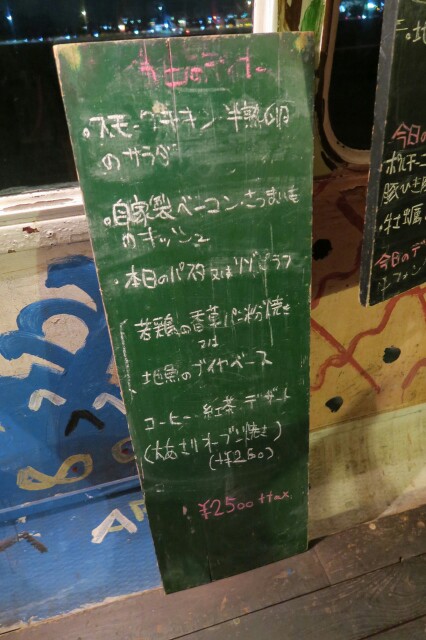 本日のディナー
・スモークチキン・半熟卵
のサラダ
・自家製ベーコン・さつまいも
のキッシュ
・本日のパスタ又はリゾット
若鶏の香草パン粉焼き
又は
地魚のブイヤベース
コーヒー 紅茶 デザート
(大あさりオーブン焼き)
(+¥280)
¥2500+tax
今日の
豚ひき
・牡蠣
今日のデ
AF